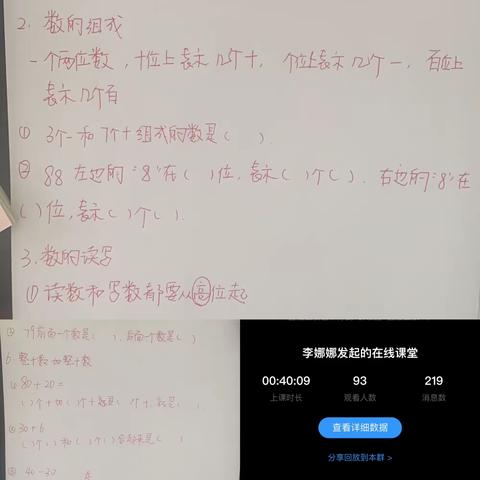 2. 数的组成
一个两位数，十位上表示几个十，个位上表示几个一，百位上
表示几个百
① 3个一和7个十组成的数是（ ）.
② 88 左边的“8”在（ ）位，表示（ ）个（ ）. 右边的“8”在
（ ）位，表示（ ）个（ ）.
3. 数的读写
① 读数和写数都要从高位起
② 79前面一个数是（ ），后面一个数是（ ）
6. 整十数加整十数
① 80+20=
（ ）个十加（ ）个十就是（ ）个十，就是（ ）.
② 30+6
（ ）个（ ）和（ ）个（ ）合起来是（ ）
③ 40-30
李娜娜发起的在线课堂
00:40:09 93 219
上课时长 观看人数 消息数
查看详细数据
分享回放到本群 >